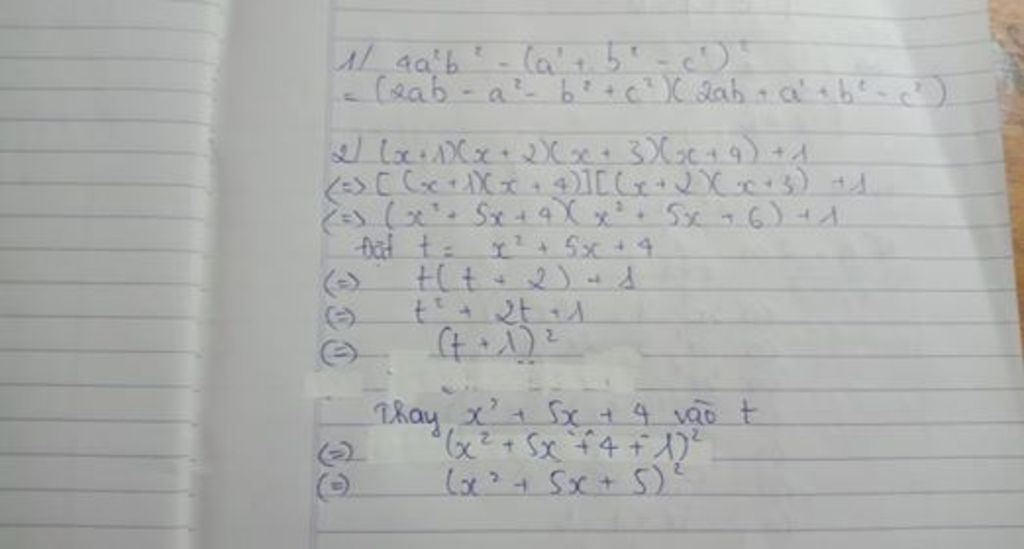 1/ 4a²b² - (a² + b² - c²)²
= (2ab - a² - b² + c²)(2ab + a² + b² - c²)
2/ (x+1)(x+2)(x+3)(x+4)+1
<=> [(x+1)(x+4)][(x+2)(x+3) +1
<=> (x² + 5x+4)(x² + 5x + 6)+1
Đặt t = x² + 5x + 4
<=> t(t + 2) + 1
<=> t² + 2t + 1
<=> (t + 1)²
Thay x² + 5x + 4 vào t
<=> (x² + 5x + 4 + 1)²
<=> (x² + 5x + 5)²